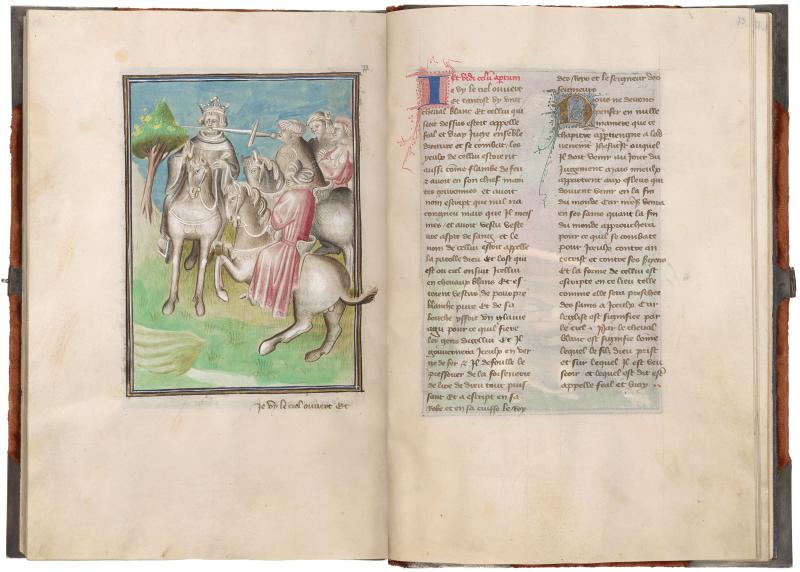 Je vy le ciel ouvert Et
Et vidi celum apertum
Je vy le ciel ouvert
et tantost vy vnt
cheual blanc et cellui qui
siet dessus estoit appelle
feal et vray Juge ensemble
droiture et se combat les
yeulx de cellui estoient
aussi come flambe de feu
et auoit en son chef main
tes couronnes et auoit
nom escript que nul na
congneu mais que Il mes
mes et auoit vestu veste
ure aspse de sanc et le
nom de cellui estoit appelle
la parolle dieu Et lost qui
est ou ciel ensuit Icellui
en cheuaux blans Et es
toient vestus de pourpre
blanche pure Et de sa
bouche yssoit vn glaiue
agu pour ce quil fiere
les gens dicellui Et Il
gouuernera Iceulx en ver
ge de fer Il defoulle le
pressouer de la foisenerie
de lire de dieu tout puis
sant Et a escript en sa
robe et en sa cuisse le Roy
des Roys et le seigneur des
seigneurs
Nous ne deuons
penser en nulle
maniere que ce
chapitre appertiengne a lad
uenement Ihesucrist ouquel
Il doit venir au Jour du
Jugement mais mieulx
appartient aux esleus qui
doiuent venir en la fin
du monde Car
en ses sains quant la fin
du monde approuchera
pour ce quil se combate
pour Iceulx contre an
tecrist et contre ses
Et la forme de cellui est
escripte en ce lieu telle
comme elle sera preschee
des sains a Iceulx Car
leglise est signifiee par
le ciel Par le cheual
blanc est signifie lome
lequel le filz dieu prist
et sur lequel Il est veu
seoir et lequel dit est
appelle feal et vray